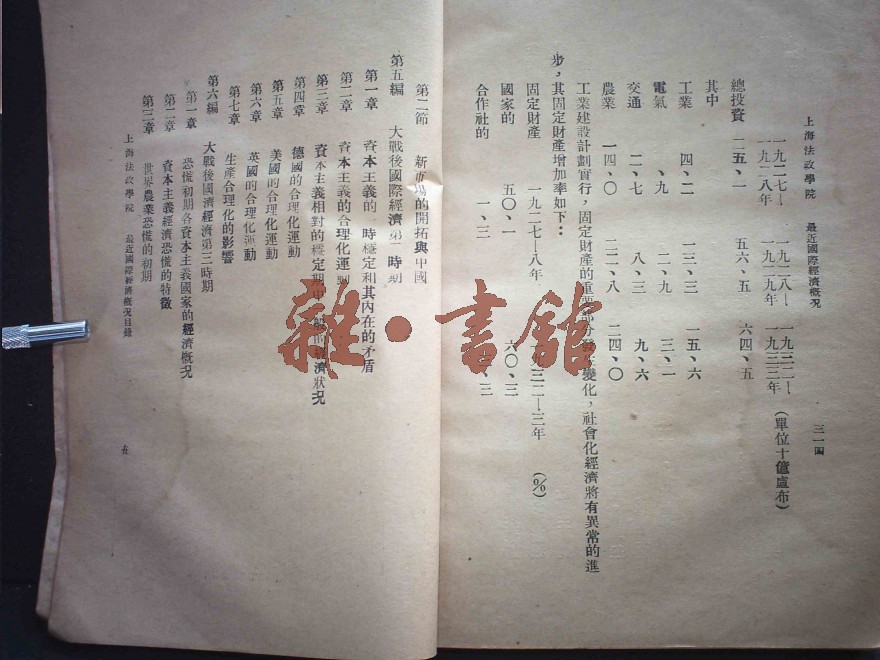 上海法政學院　最近國際經濟槪況　三一四
一九二七—一九二八年　一九二八—一九二九年　一九三二—一九三三年　(單位十億盧布)
總投資　二五、一　五六、五　六四、五
其中
工業　四、二　一三、三　一五、六
電氣　、九　二、九　三、一
交通　二、七　八、三　九、六
農業　一四、〇　二二、八　二四、〇
工業建設計劃實行，固定財產的重要部分變化，社會化經濟將有異常的進
步，其固定財產增加率如下：
固定財產　一九二七—八年　九三二—三年　(%)
國家的　五〇、一　六〇、三
合作社的　一、三　、三
第二節　新市場的開拓與中國
第五編　大戰後國際經濟第一時期
第一章　資本主義的　時穩定和其內在的矛盾
第二章　資本主義的合理化運動
第三章　資本主義相對的穩定期中　般的經濟狀况
第四章　德國的合理化運動
第五章　美國的合理化運動
第六章　英國的合理化運動
第七章　生產合理化的影響
第六編　大戰後國濟經濟第三時期
第一章　恐慌初期各資本主義國家的經濟槪况
第二章　資本主義經濟恐慌的特徵
第三章　世界農業恐慌的初期
上海法政學院　最近國際經濟槪況目錄　五
雜·書館